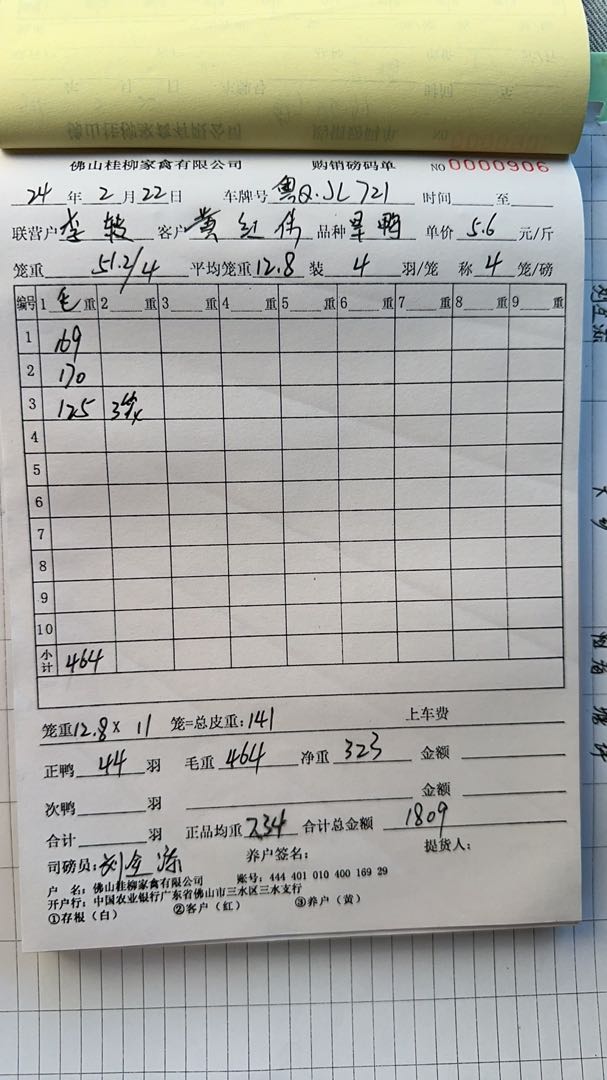 佛山桂柳家禽有限公司 购销磅码单 NO 0000906
24 年 2 月 22 日 车牌号 粤Q.JL721 时间 至
联营户 李 客户 黄红伟 品种 鸭 单价 5.6 元/斤
笼重 51.2/4 平均笼重 12.8 装 4 羽/笼 称 4 笼/磅
编号 1 毛 重 2 重 3 重 4 重 5 重 6 重 7 重 8 重 9 重
1 169
2 170
3 125 3
4
5
6
7
8
9
10
小计 464
笼重 12.8 × 11 笼=总皮重: 141 上车费
正鸭 44 羽 毛重 464 净重 323 金额
次鸭 羽 金额
合计 羽 正品均重 7.34 合计总金额 1809
司磅员: 刘 养户签名: 提货人:
户 名: 佛山桂柳家禽有限公司 账号: 444 401 010 400 169 29
开户行: 中国农业银行广东省佛山市三水区三水支行
①存根(白) ②客户(红) ③养户(黄)